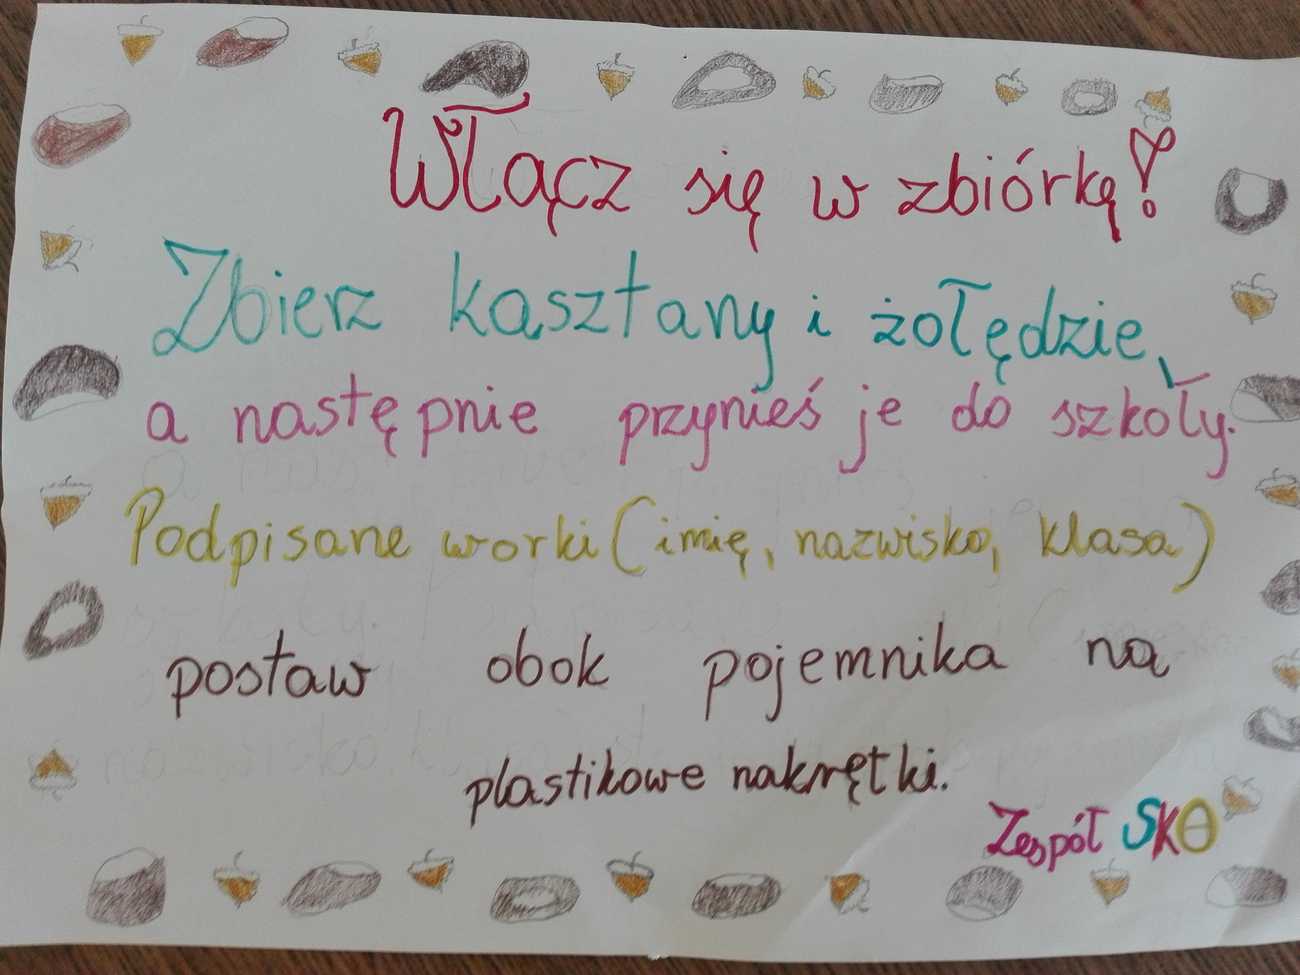 Włącz się w zbiórkę!
Zbierz kasztany i żołędzie,
a następnie przynieś je do szkoły.
Podpisane worki (imię, nazwisko, klasa)
postaw obok pojemnika na
plastikowe nakrętki.
Zespół SKO